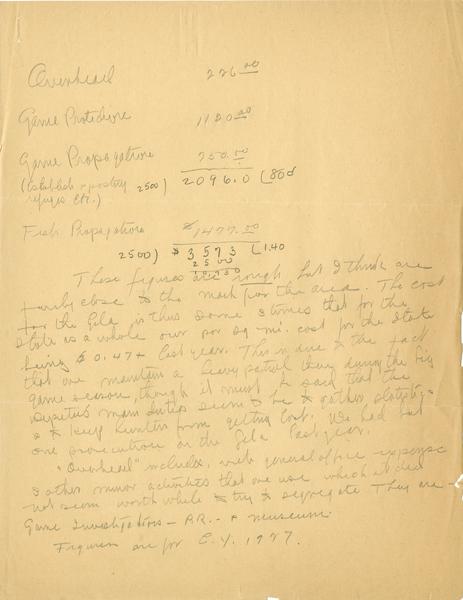 Overhead 226.00
Game Protection 1120.00
Game Propagation 750.00
(Establish & posting 2500) 2096.0 (.80
refuges Etc.)
Fish Propagation 1477.00
2500) $ 3573 (1.40
2500
10700
These figures are rough but I think are
fairly close to the mark for the area. The cost
for the Gila is thus some 3 times that for the
State as a whole our per sq. mi. cost for the State
being $0.47+ last year. This is due to the fact
that we maintain a heavy patrol there during the big
game season, though it must be said that the
deputies main duties seem to be to
to keep hunters from getting lost. We had but
one prosecution on the Gila last year.
"Overhead" includes, with general office expense
& other minor activities that we use which it did
not seem worth while to try to segregate They are -
Game Investigations - P.R. - & museum.
Figures are for C.Y. 1927.